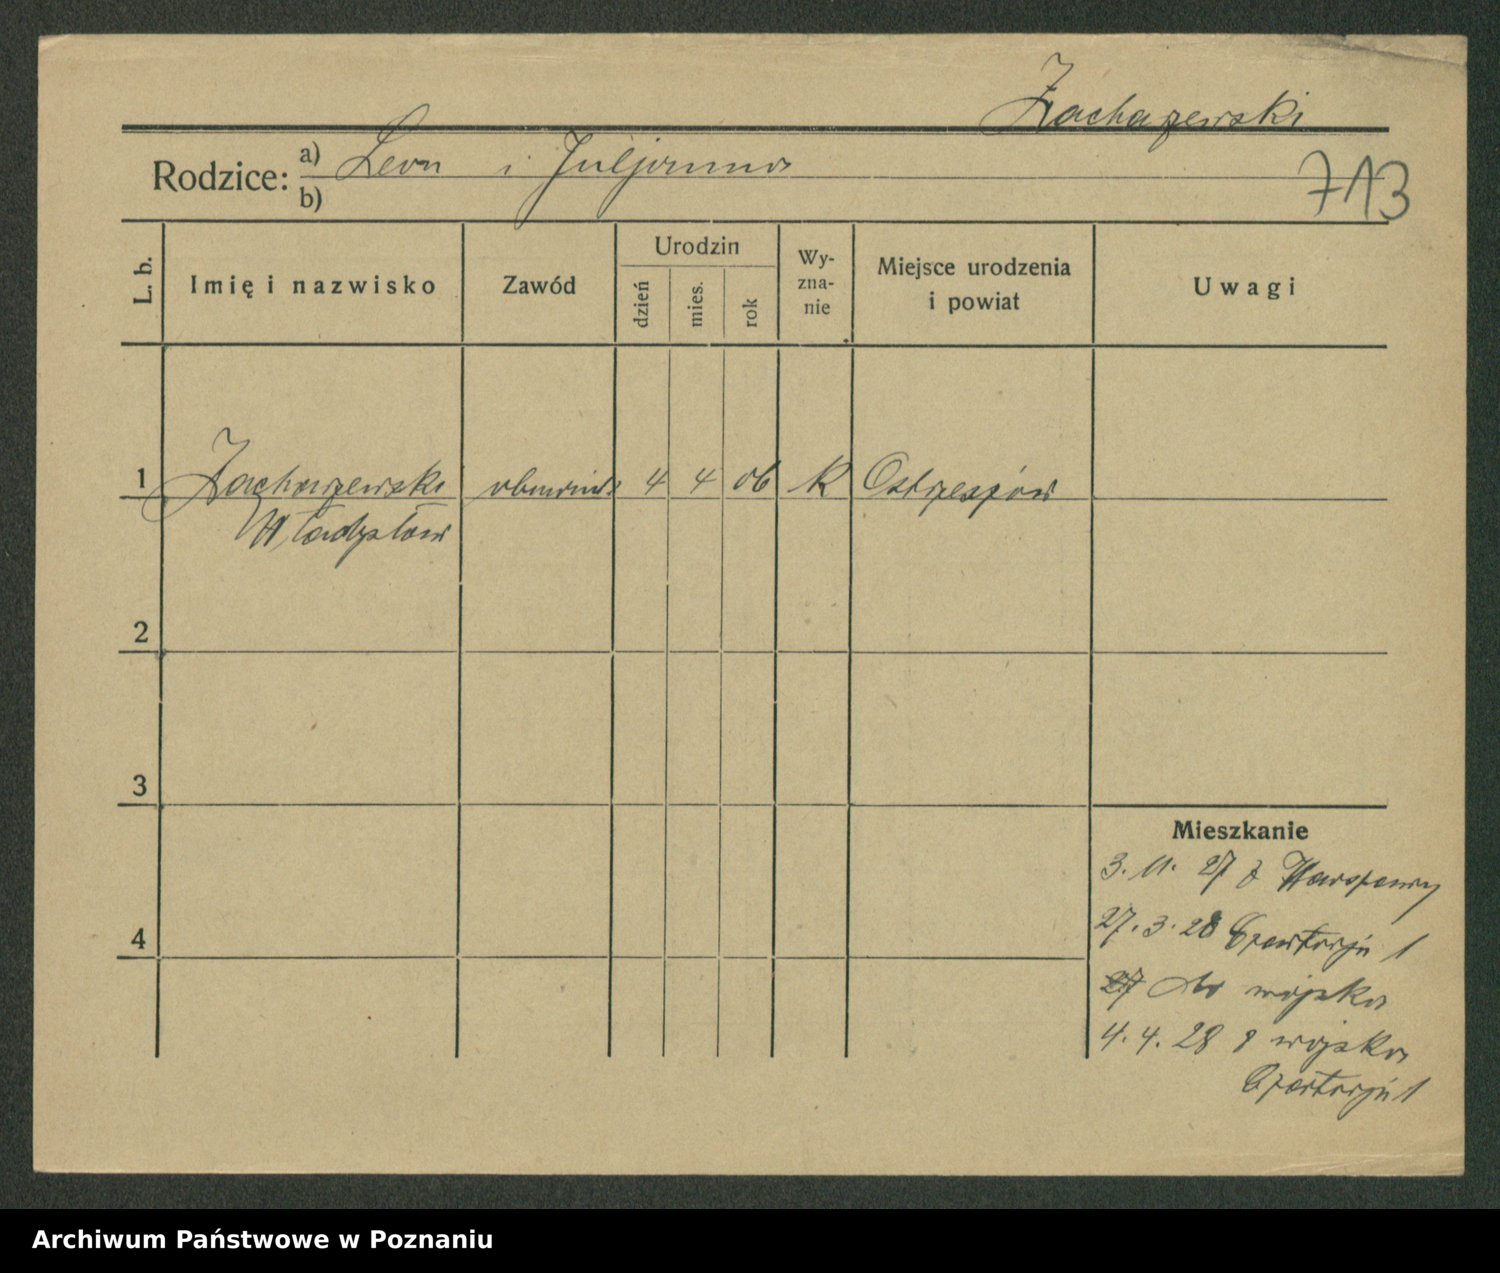 Zacharzewski
Rodzice: a) Leon i Juljanna
b)
713
L. b.
Imię i nazwisko
Zawód
Urodzin
dzień
mies.
rok
Wy-
zna-
nie
Miejsce urodzenia
i powiat
Uwagi
1 Zacharzewski 4 4 06 K Ostrzeszów
Władysław
2
3
4
Mieszkanie
3. 11. 27 z Warszawy
27. 3. 28 1
27 do wojska
4. 4. 28 z wojska
1
Archiwum Państwowe w Poznaniu